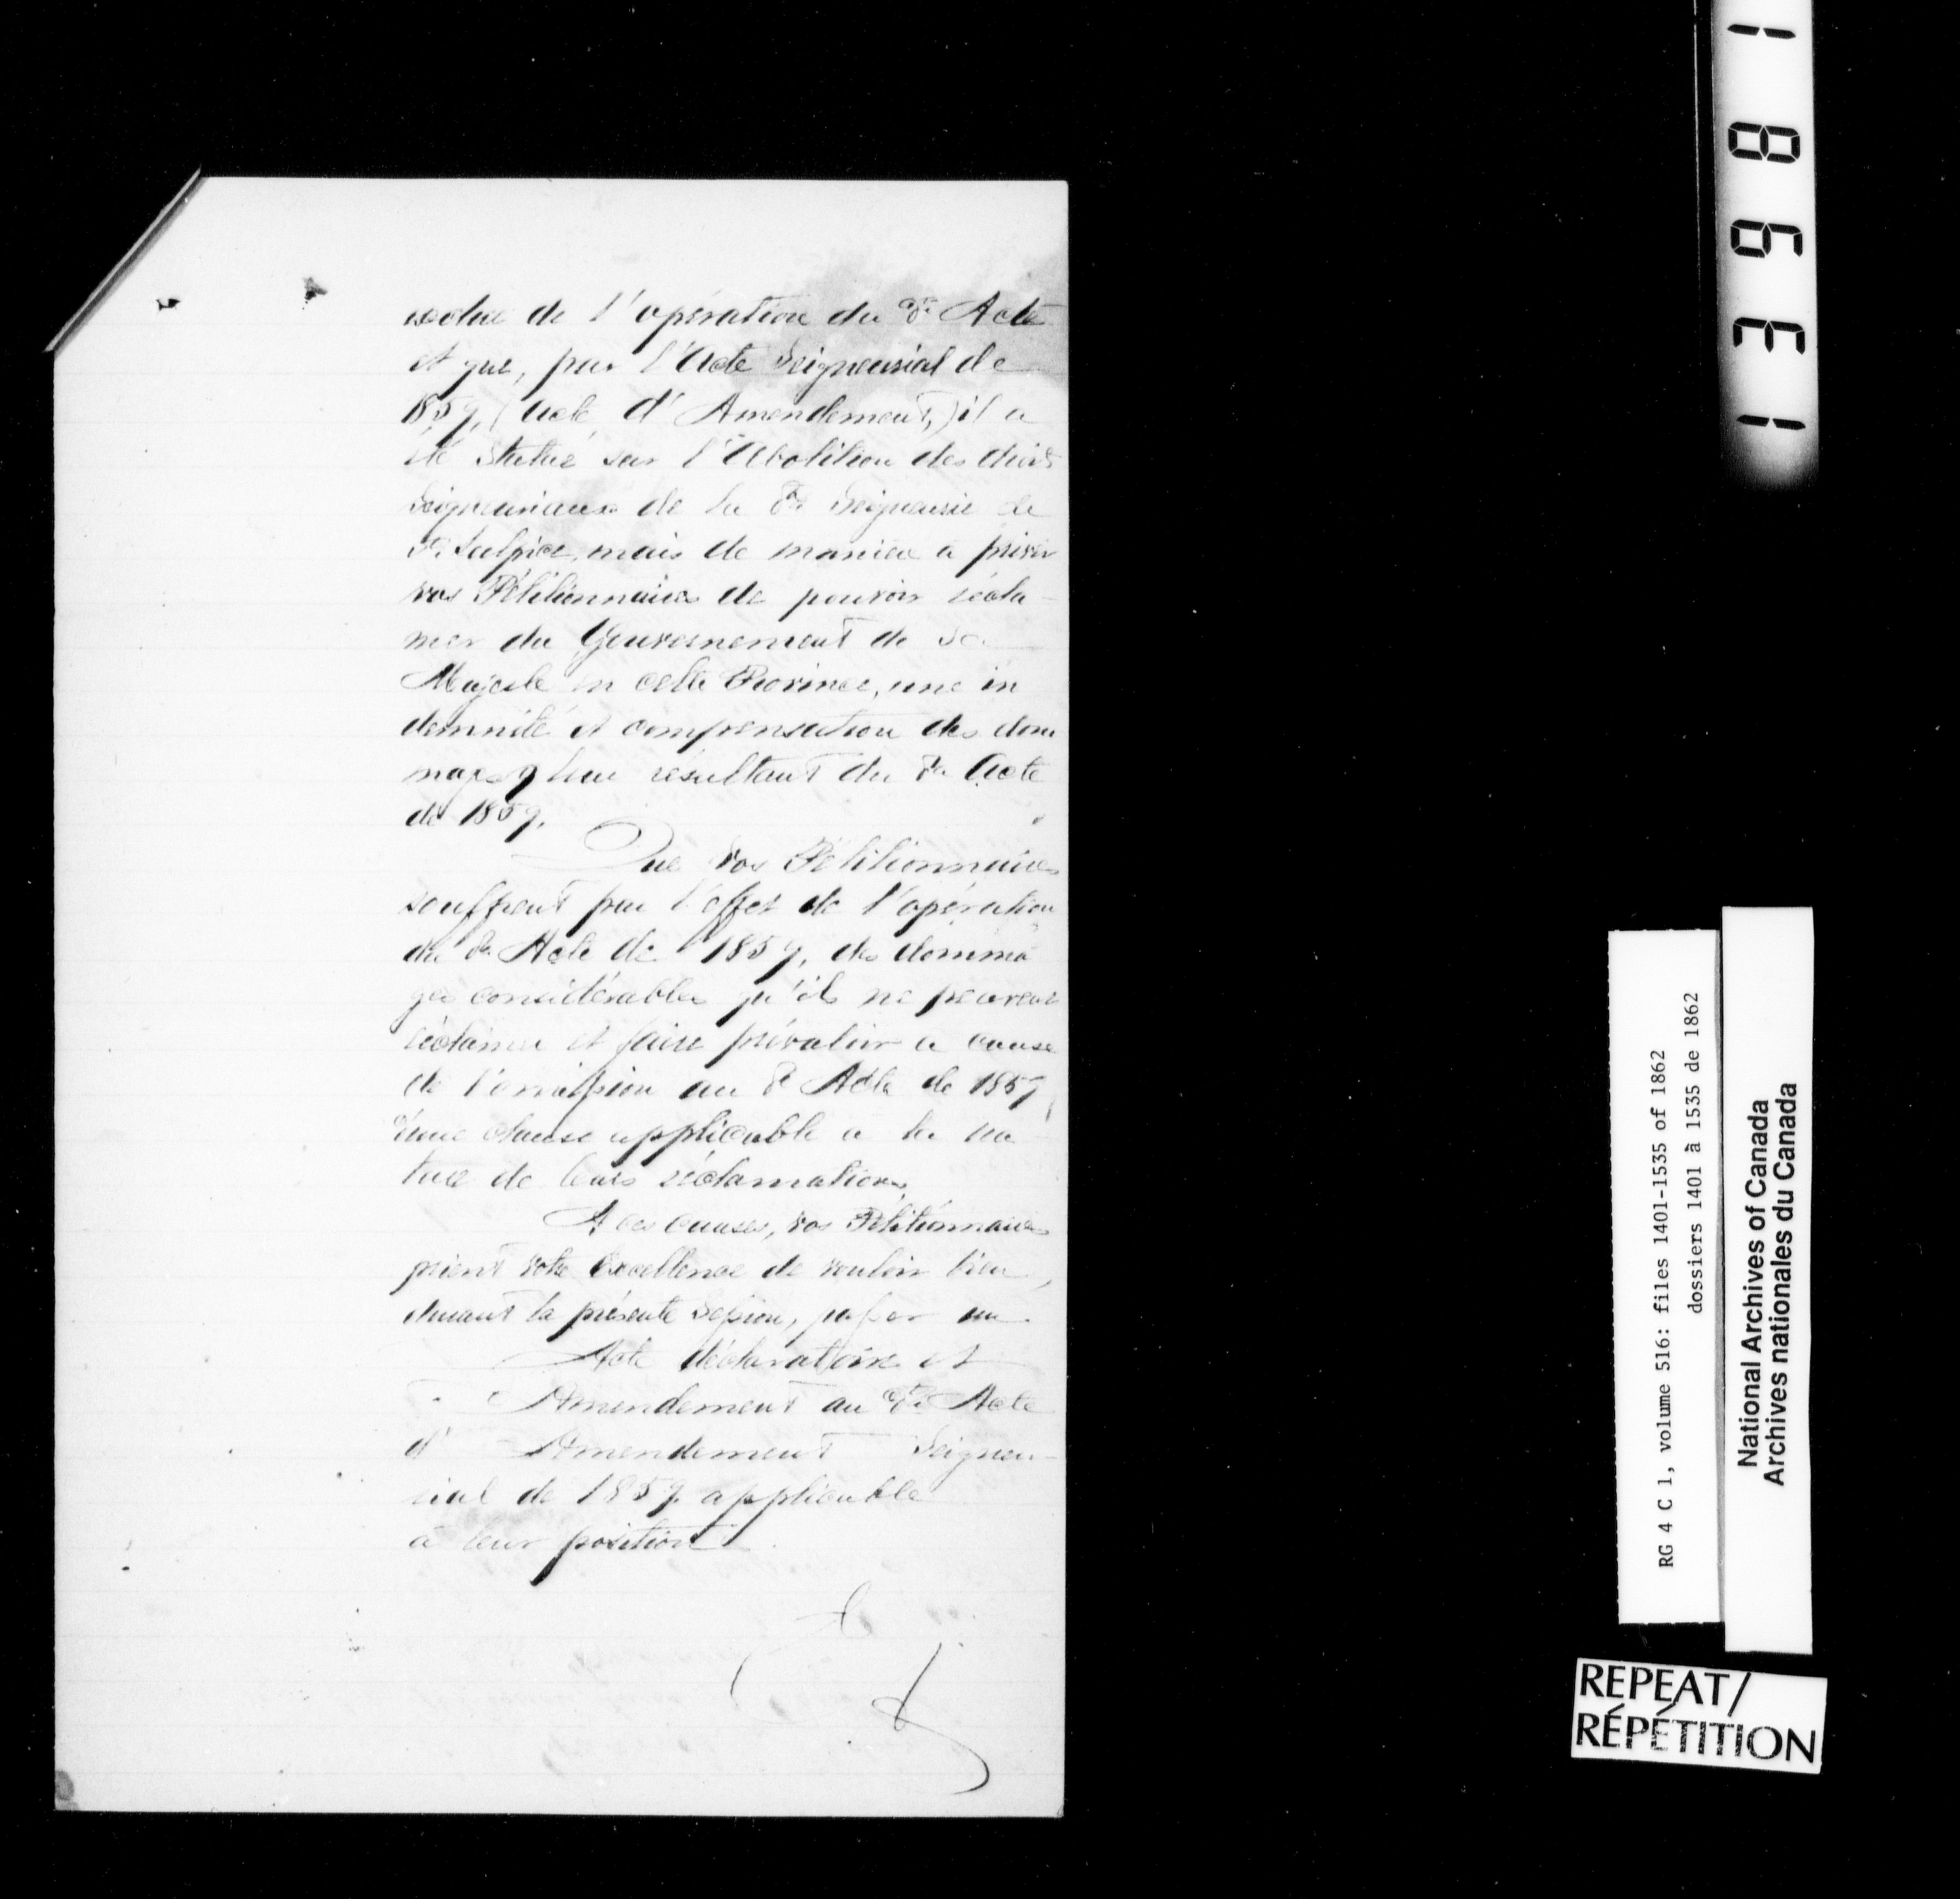 exclue de l'opération du dt. Acte
et que, par l'Acte Seigneurial de
1859, (acte d'Amendement,) il a
été statué sur l'Abolition des droits
Seigneuriaux de la dte Seigneurie de
St. Sulpice, mais de manière à priver
vos Pétitionnaires de pouvoir récla-
mer du Gouvernement de Sa
Majesté en cette Province, une in
demnité et compensation des dom
mages leur résultant du dt. Acte
de 1859.
Que vos Pétitionnaires
souffrent par l'effet de l'opération
du dt. Acte de 1859, des domma
ges considérables qu'ils ne peuvent
réclamer et faire prévaloir à cause
de l'omission au dt Acte de 1859,
d'une clause applicable à la na
ture de leurs réclamations,
A ces causes, vos Pétitionnaires
prient votre Excellence de vouloir bien,
durant la présente Session, passer un
Acte déclaratoire et
Amendement au dt. Acte
d' Amendement Seigneu-
rial de 1859 applicable
à leur position.
1 8 6 3 1
RG 4 C 1, volume 516: files 1401-1535 of 1862
dossiers 1401 à 1535 de 1862
National Archives of Canada
Archives nationales du Canada
REPEAT/
RÉPÉTITION